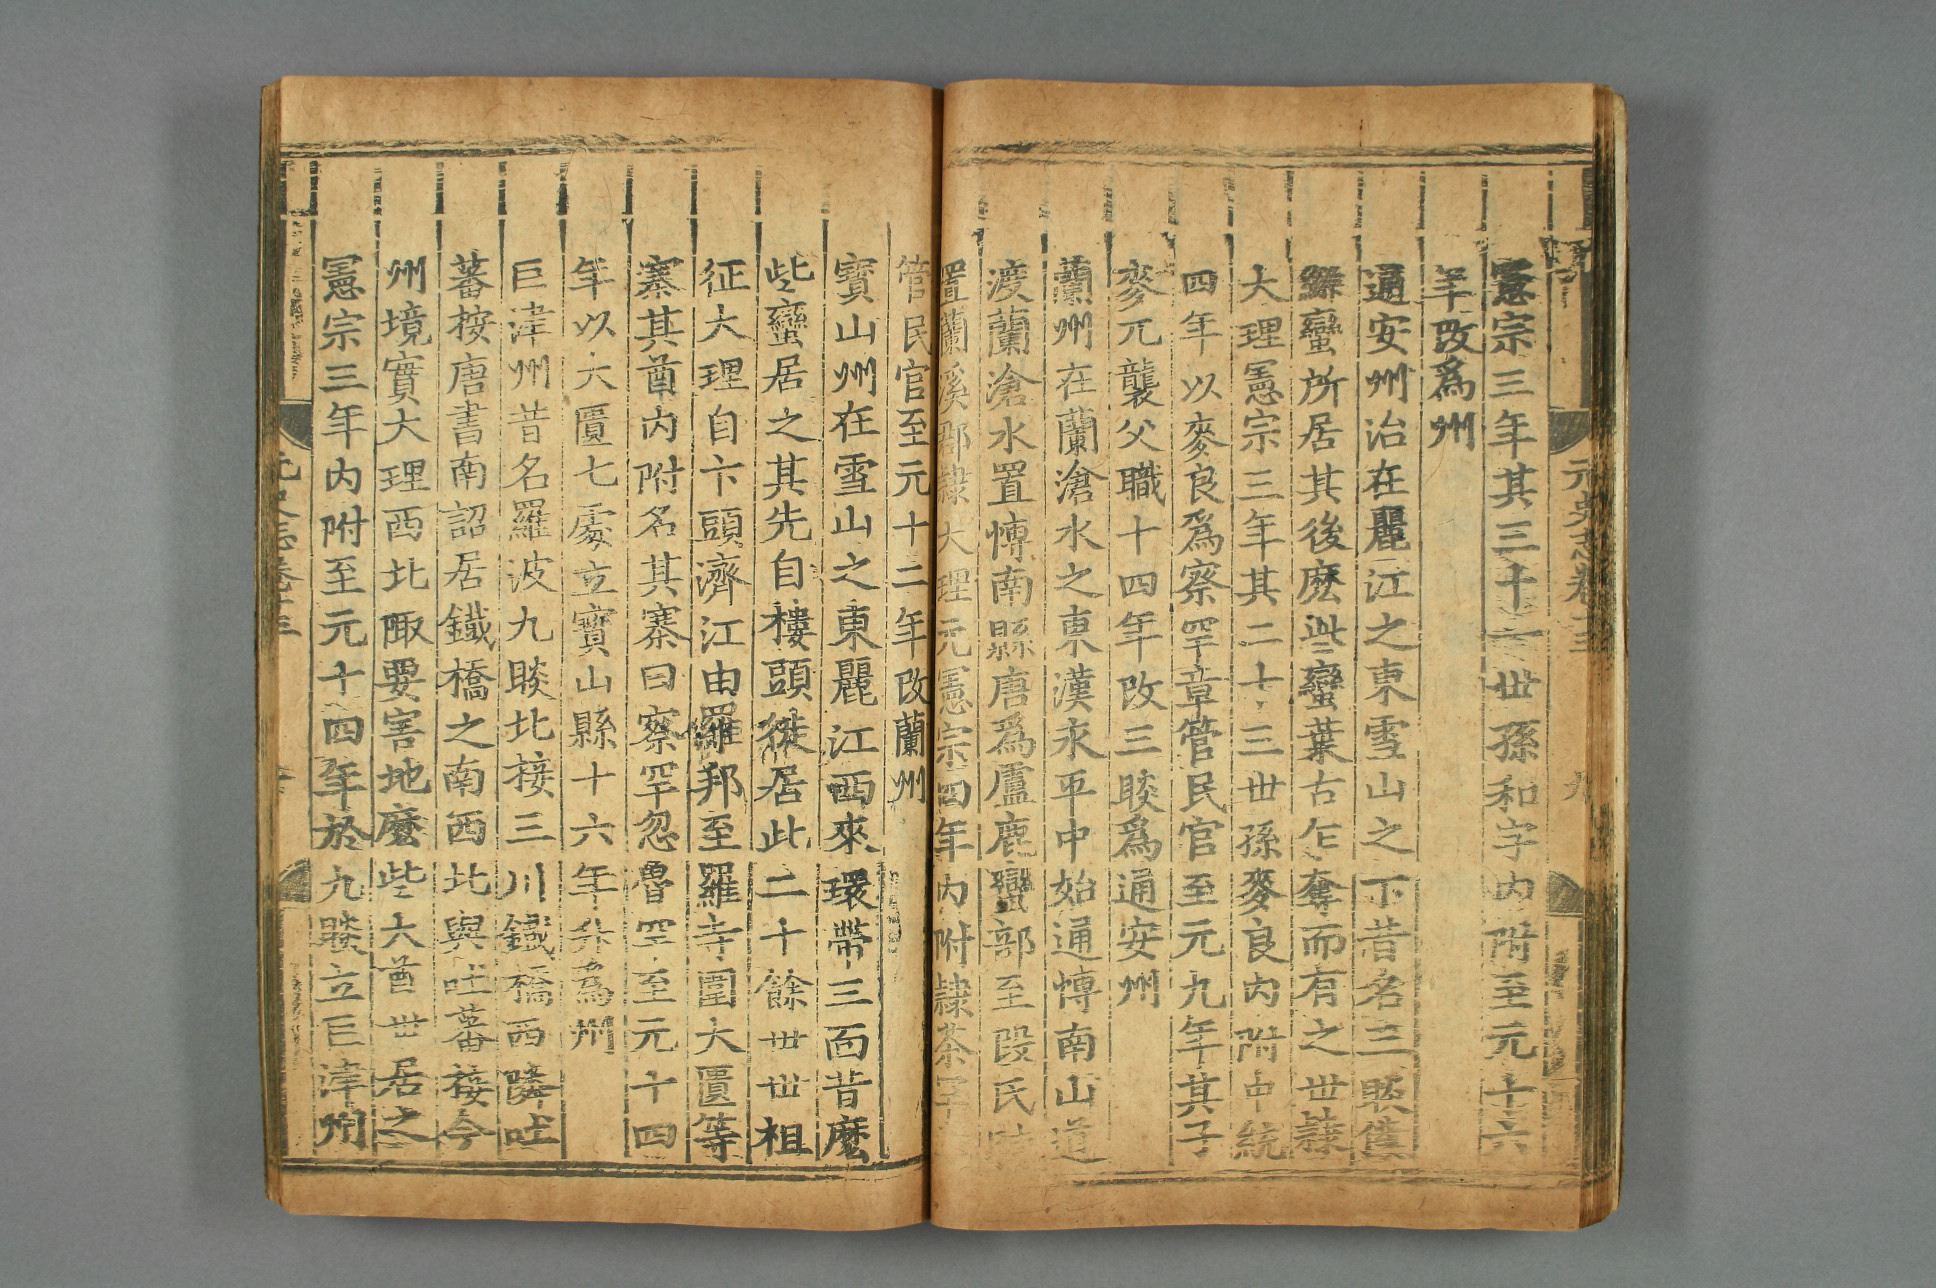 元史志卷十三
九
憲宗三年其三十一世孫和字内附至元十六
年改爲州
通安州治在麗江之東雪山之下昔名三賧僕
繲蠻所居其後麽些蠻葉古乍奪而有之世隷
大理憲宗三年其二十三世孫麥良内附中統
四年以麥良爲察罕章管民官至元九年其子
麥兀襲父職十四年改三賧爲通安州
蘭州在蘭滄水之東漢永平中始通博南山道
渡蘭滄水置博南縣唐爲盧鹿蠻部至段氏時
置蘭溪郡隷大理元憲宗四年内附隷茶罕
管民官至元十二年改蘭州
寶山州在雪山之東麗江西來環帶三面昔麽
些蠻居之其先自樓頭徙居此二十餘世世祖
征大理自卞頭濟江由羅邦至羅寺圍大匱等
寨其酋内附名其寨曰察罕忽魯罕至元十四
年以大匱七處立寶山縣十六年升爲州
巨津州昔名羅波九賧北接三川鐵橋西隣吐
蕃按唐書南詔居鐵橋之南西北與吐蕃接今
州境實大理西北陬要害地麽些大酋世居之
憲宗三年内附至元十四年於九賧立巨津州
元史志卷十三